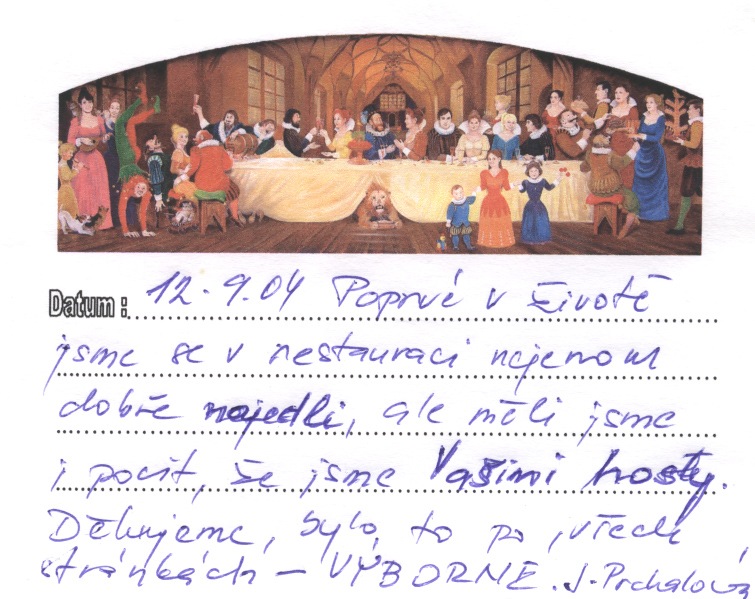 Datum: 12.9.04 Poprvé v životě
jsme se v restauraci nejenom
dobře najedli, ale měli jsme
i pocit, že jsme Vašimi hosty.
Děkujeme, bylo to po všech
stránkách – VÝBORNÉ. J. Prchalová